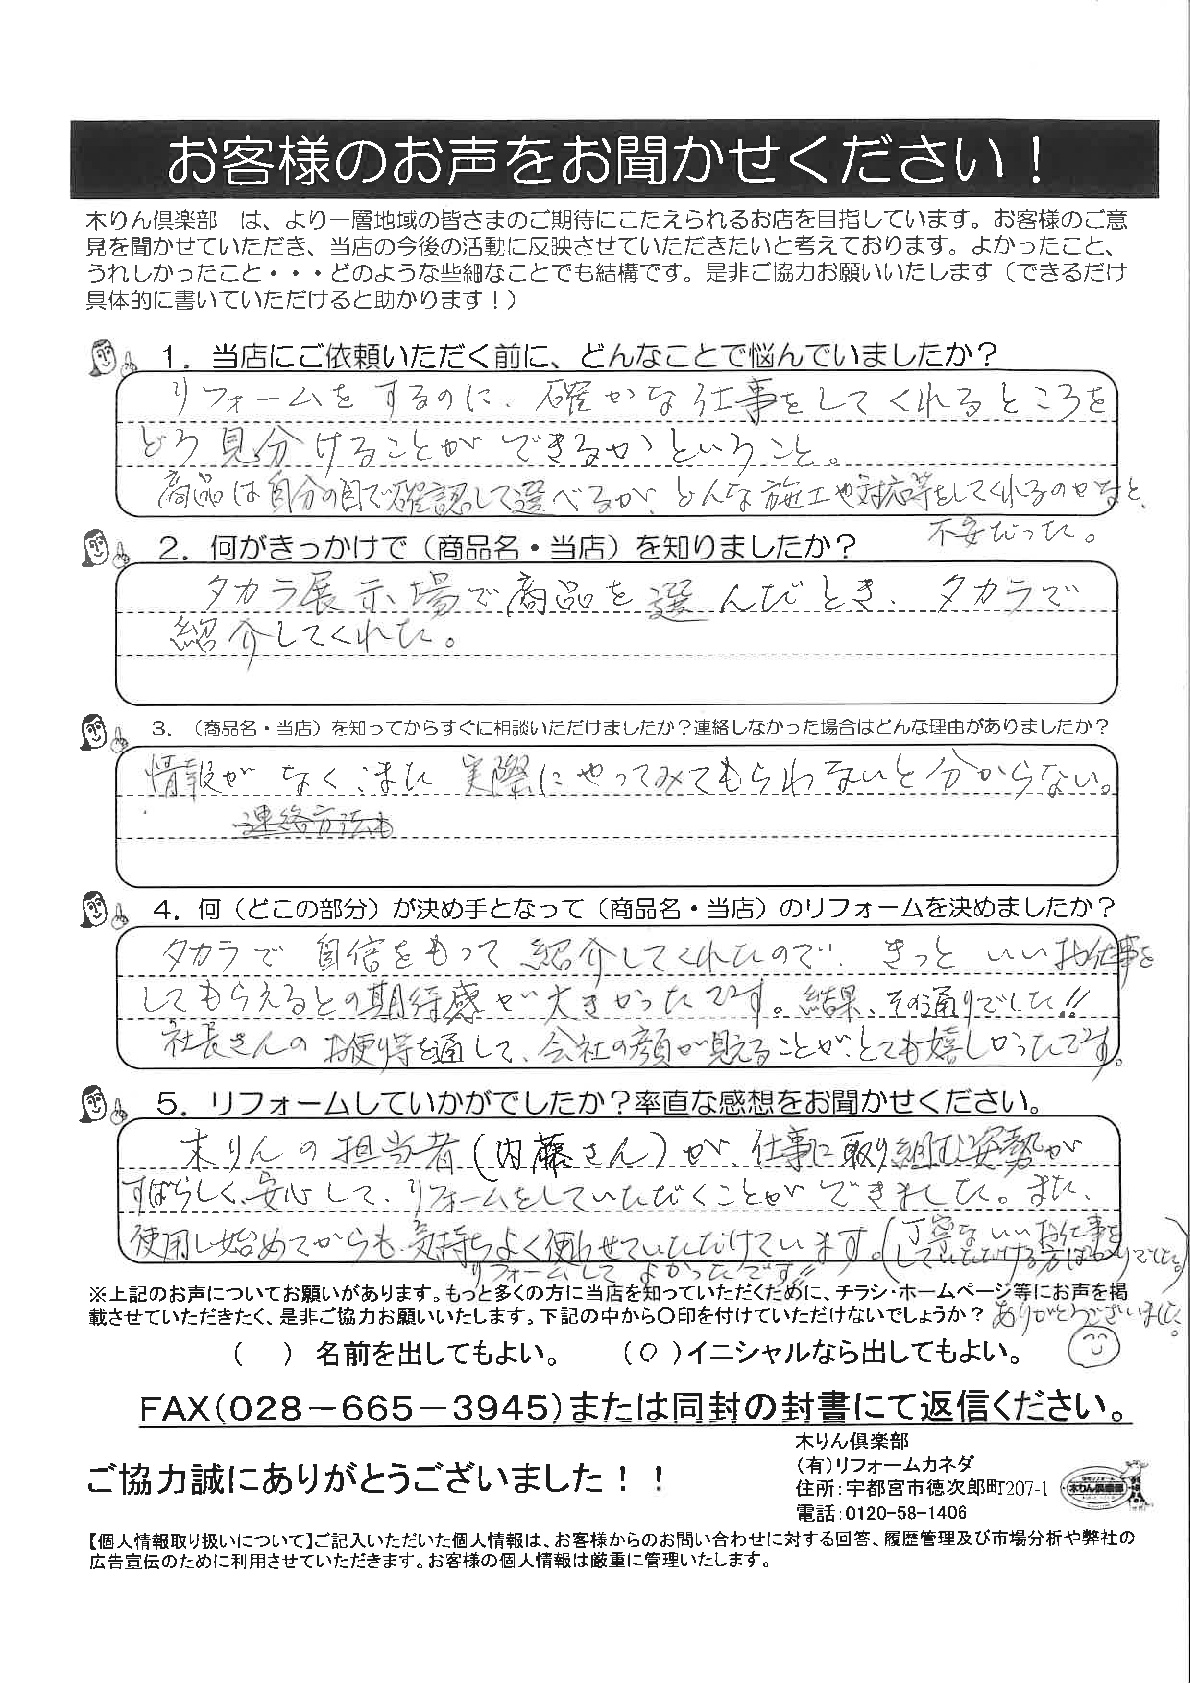 お客様のお声をお聞かせください！
木りん倶楽部　は、より一層地域の皆さまのご期待にこたえられるお店を目指しています。お客様のご意
見を聞かせていただき、当店の今後の活動に反映させていただきたいと考えております。よかったこと、
うれしかったこと・・・どのような些細なことでも結構です。是非ご協力お願いいたします（できるだけ
具体的に書いていただけると助かります！）
１．当店にご依頼いただく前に、どんなことで悩んでいましたか？
リフォームをするのに、確かな仕事をしてくれるところを
どう見分けることができるかということ。
商品は自分の目で確認して選べるが、どんな施工や対応等をしてくれるのかなと、
不安だった。
２．何がきっかけで（商品名・当店）を知りましたか？
タカラ展示場で商品を選んだとき、タカラで
紹介してくれた。
３．（商品名・当店）を知ってからすぐに相談いただけましたか？連絡しなかった場合はどんな理由がありましたか？
情報がなく、また実際にやってみてもらわないと分からない。
連絡方法も
４．何（どこの部分）が決め手となって（商品名・当店）のリフォームを決めましたか？
タカラで自信をもって紹介してくれたので、きっといいお仕事を
してもらえるとの期待感が大きかったです。結果、その通りでした!!
社長さんのお便り等を通して、会社の顔が見えることが、とても嬉しかったです。
５．リフォームしていかがでしたか？率直な感想をお聞かせください。
木りんの担当者（内藤さん）が、仕事に取り組む姿勢が
すばらしく、安心して、リフォームをしていただくことができました。また、
使用し始めてからも、気持ちよく使わせていただけています。（丁寧ないいお仕事を
していただける方ばかりでした。）
リフォームしてよかったです!!
※上記のお声についてお願いがあります。もっと多くの方に当店を知っていただくために、チラシ・ホームページ等にお声を掲
載させていただきたく、是非ご協力お願いいたします。下記の中から○印を付けていただけないでしょうか？
ありがとうございました。
（　）名前を出してもよい。　　（○）イニシャルなら出してもよい。
FAX（028－665－3945）または同封の封書にて返信ください。
ご協力誠にありがとうございました！！
木りん倶楽部
(有)リフォームカネダ
住所：宇都宮市徳次郎町207-1
電話：0120-58-1406
木りん倶楽部
【個人情報取り扱いについて】ご記入いただいた個人情報は、お客様からのお問い合わせに対する回答、履歴管理及び市場分析や弊社の
広告宣伝のために利用させていただきます。お客様の個人情報は厳重に管理いたします。